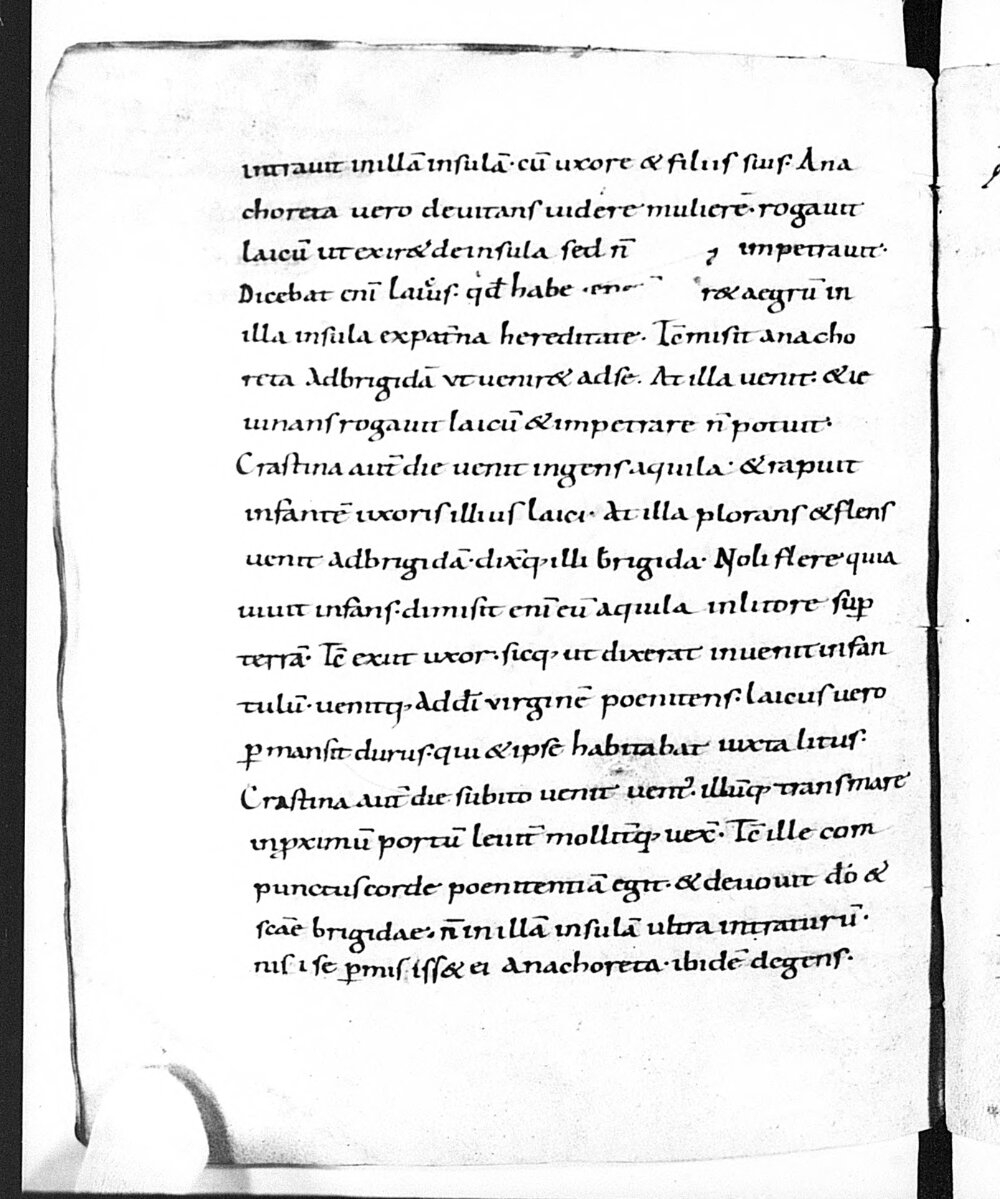 intrauit inillā insulā· cū uxore & filiis suis· Ana
choreta uero deuitans uidere muliere᷒· rogauit
laicū ut exir& deinsula sed n̄ impetrauit·
Dicebat eni᷒ laicus· qd̄ habe r& aegrū in
illa insula expat̄na hereditate· Tc̄ misit anacho
reta Adbrigidā vt uenir& adse. At illa uenit· & ie
iunans rogauit laicū & impetrare n̄ potuit·
Crastina aut̄ die uenit ingens aquila· & rapuit
infantē uxoris illius laici· At illa plorans & flens
uenit adbrigidā· dix̄q; illi brigida· Noli flere quia
uiuit infans· dimisit enī eū aquila inlitore sup̄
terrā· Tc̄ exiit uxor· sicq; ut dixerat inuenit infan
tulū· uenitq; Addī virginē poenitens· laicus uero
ꝑmansit durus· qui & ipse habitabat iuxta litus·
Crastina aut̄ die subito uenit uent᷒· illūq; transmare
inꝓximū portū leuit̄ mollit̄q; uex̄· Tc̄ ille com
punctus corde poenitentiā egit· & deuouit dō &
scāe brigidae· n̄ in illā insulā ultra intraturū·
nisi se ꝑmisiss& ei anachoreta· ibidē degens·